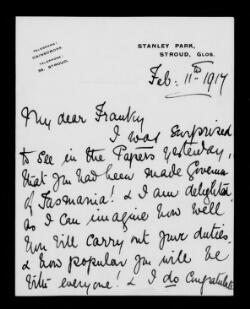 TELEGRAMS:
CAINSCROSS.
TELEPHONE:
STROUD.
STANLEY PARK,
STROUD, GLOS.
Feb: 11th 1917
My dear Franky
I was surprised
to see in the Papers yesterday,
that you had been made Governor
of Tasmania! & I am delighted
as I can imagine how well
you will carry out your duties,
& how popular you will be
with everyone! & I do congratulate